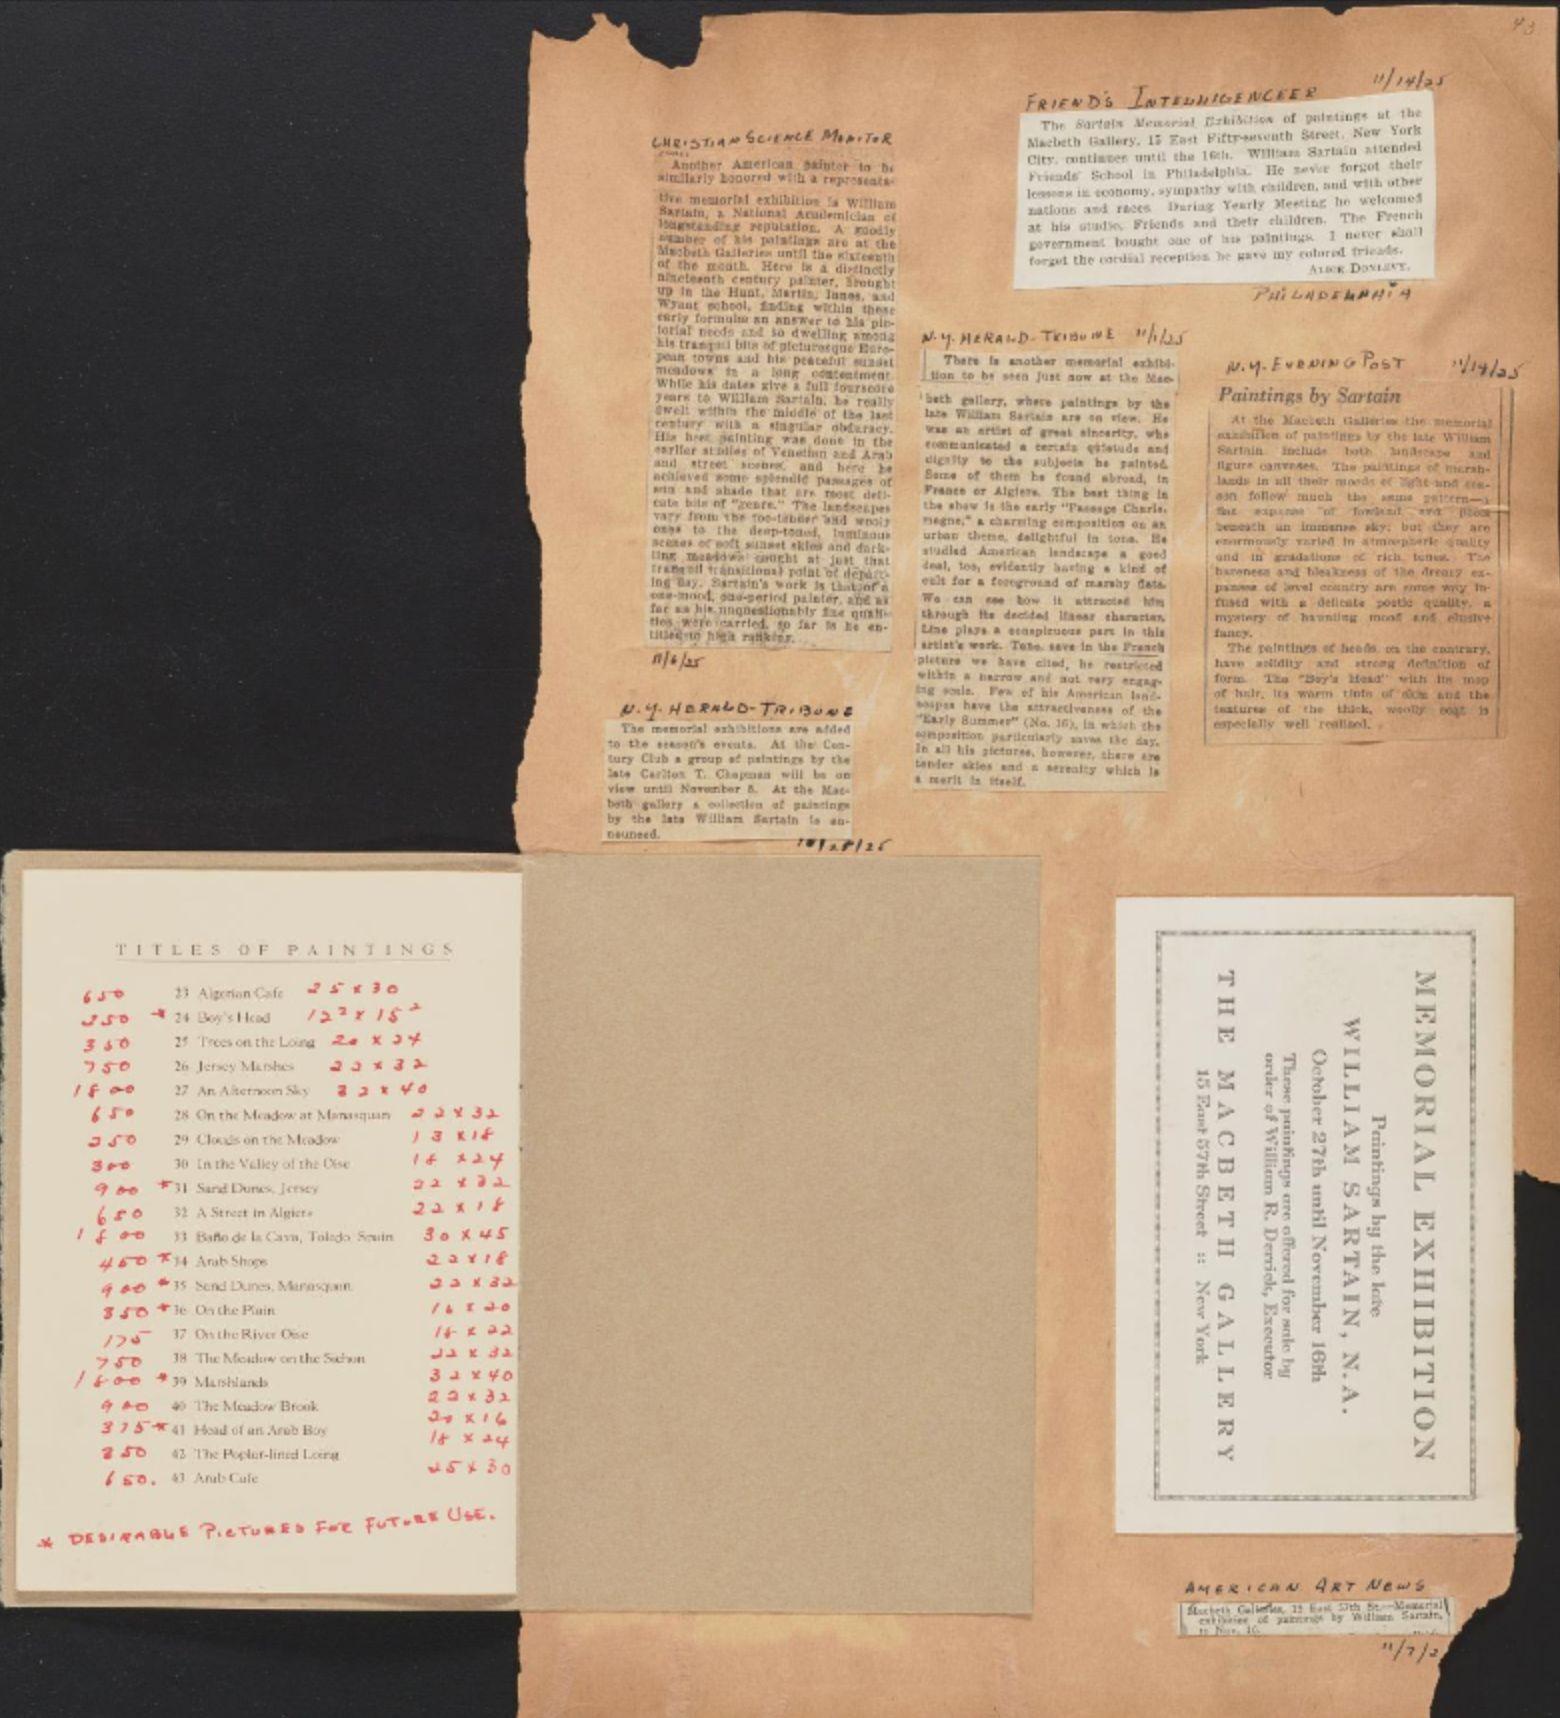 43
CHRISTIAN SCIENCE MONITOR
Another American painter to be
similarly honored with a representa-
tive memorial exhibition is William
Sartain, a National Academician of
longstanding reputation. A goodly
number of his paintings are at the
Macbeth Galleries until the sixteenth
of the month. Here is a distinctly
nineteenth century painter, brought
up in the Hunt, Martin, Innes, and
Wyant school, finding within these
early formulas an answer to his pic-
torial needs and so dwelling among
his tranquil bits of picturesque Euro-
pean towns and his peaceful sunset
meadows in a long contentment.
While his dates give a full fourscore
years to William Sartain, he really
dwelt within the middle of the last
century with a singular obduracy.
His best painting was done in the
earlier studies of Venetian and Arab
and street scenes, and here he
achieved some splendid passages of
sun and shade that are most deli-
cate bits of "genre." The landscapes
vary from the too-tender and wooly
ones to the deep-toned, luminous
scenes of soft sunset skies and dark-
ling meadows caught at just that
tranquil transitional point of depart-
ing day. Sartain's work is that of a
one-mood, one-period painter, and as
far as his unquestionably fine quali-
ties were carried, so far is he en-
titled to high ranking.
11/6/25
N.Y. HERALD-TRIBUNE
The memorial exhibitions are added
to the season's events. At the Cen-
tury Club a group of paintings by the
late Carlton T. Chapman will be on
view until November 8. At the Mac-
beth gallery a collection of paintings
by the late William Sartain is an-
nounced.
10/28/25
FRIEND'S INTELLIGENCEER
11/14/25
The Sartain Memorial Exhibition of paintings at the
Macbeth Gallery, 15 East Fifty-seventh Street, New York
City, continues until the 16th. William Sartain attended
Friends' School in Philadelphia. He never forgot their
lessons in economy, sympathy with children, and with other
nations and races. During Yearly Meeting he welcomed
at his studio, Friends and their children. The French
government bought one of his paintings. I never shall
forget the cordial reception he gave my colored friends.
ALICE DONLEVY.
PHILADELPHIA
N.Y. HERALD-TRIBUNE 11/1/25
There is another memorial exhibi-
tion to be seen just now at the Mac-
beth gallery, where paintings by the
late William Sartain are on view. He
was an artist of great sincerity, who
communicated a certain quietude and
dignity to the subjects he painted.
Some of them he found abroad, in
France or Algiers. The best thing in
the show is the early "Passage Charle-
magne," a charming composition on an
urban theme, delightful in tone. He
studied American landscape a good
deal, too, evidently having a kind of
cult for a foreground of marshy flats.
We can see how it attracted him
through its decided linear character.
Line plays a conspicuous part in this
artist's work. Tone, save in the French
picture we have cited, he restricted
within a narrow and not very engag-
ing scale. Few of his American land-
scapes have the attractiveness of the
"Early Summer" (No. 16), in which the
composition particularly saves the day.
In all his pictures, however, there are
tender skies and a serenity which is
a merit in itself.
N.Y. EVENING POST 11/14/25
Paintings by Sartain
At the Macbeth Galleries the memorial
exhibition of paintings by the late William
Sartain include both landscape and
figure canvases. The paintings of marsh-
lands in all their moods of light and sea-
son follow much the same pattern—a
flat expanse of lowland and pools
beneath an immense sky; but they are
enormously varied in atmospheric quality
and in gradations of rich tones. The
bareness and bleakness of the dreary ex-
panses of level country are some way in-
fused with a delicate poetic quality, a
mystery of haunting mood and elusive
fancy.
The paintings of heads, on the contrary,
have solidity and strong definition of
form. The "Boy's Head" with its mop
of hair, its warm tints of skin and the
textures of the thick, woolly coat is
especially well realized.
TITLES OF PAINTINGS
650 23 Algerian Cafe 25 x 30
350 * 24 Boy's Head 12² x 15²
350 25 Trees on the Loing 20 x 24
750 26 Jersey Marshes 22 x 32
1800 27 An Afternoon Sky 32 x 40
650 28 On the Meadow at Manasquan 22 x 32
250 29 Clouds on the Meadow 13 x 18
300 30 In the Valley of the Oise 18 x 24
900 * 31 Sand Dunes, Jersey 22 x 32
650 32 A Street in Algiers 22 x 18
1800 33 Baño de la Cava, Toledo, Spain 30 x 45
450 * 34 Arab Shops 22 x 18
900 * 35 Sand Dunes, Manasquan 22 x 32
350 * 36 On the Plain 16 x 20
175 37 On the River Oise 18 x 22
750 38 The Meadow on the Sichon 22 x 32
1800 * 39 Marshlands 32 x 40
900 40 The Meadow Brook 22 x 32
375 * 41 Head of an Arab Boy 20 x 16
350 42 The Poplar-lined Loing 18 x 24
650. 43 Arab Cafe 25 x 30
* DESIRABLE PICTURES FOR FUTURE USE.
MEMORIAL EXHIBITION
Paintings by the late
WILLIAM SARTAIN, N.A.
October 27th until November 16th
These paintings are offered for sale by
order of William R. Derrick, Executor
THE MACBETH GALLERY
15 East 57th Street :: New York
AMERICAN ART NEWS
Macbeth Galleries, 15 East 57th St.—Memorial
exhibition of paintings by William Sartain,
to Nov. 16.
11/7/2